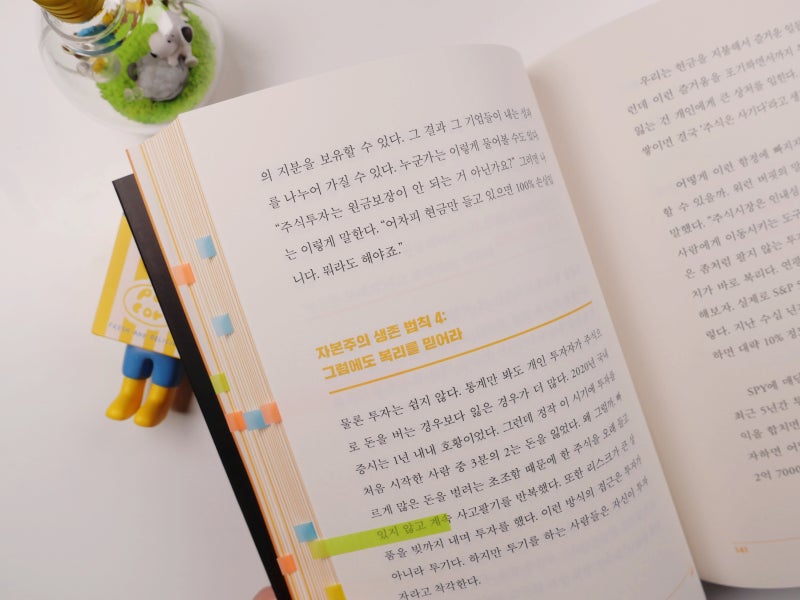 의 지분을 보유할 수 있다. 그 결과 그 기업들이 내는 성과
를 나누어 가질 수 있다. 누군가는 이렇게 물어볼 수도 있다.
“주식투자는 원금보장이 안 되는 거 아닌가요?” 그러면 나
는 이렇게 말한다. “어차피 현금만 들고 있으면 100% 손실입
니다. 뭐라도 해야죠.”
자본주의 생존 법칙 4:
그럼에도 복리를 믿어라
물론 투자는 쉽지 않다. 통계만 봐도 개인 투자자가 주식으
로 돈을 버는 경우보다 잃은 경우가 더 많다. 2020년 국내
증시는 1년 내내 호황이었다. 그런데 정작 이 시기에 투자를
처음 시작한 사람 중 3분의 2는 돈을 잃었다. 왜 그럴까. 빠
르게 많은 돈을 벌려는 초조함 때문에 한 주식을 오래 들고
있지 않고 계속 사고팔기를 반복했다. 또한 리스크가 큰 상
품을 빚까지 내며 투자를 했다. 이런 방식의 접근은 투자가
아니라 투기다. 하지만 투기를 하는 사람들은 자신이 투자
자라고 착각한다.
우리는 현금을 지불해서 즐거운 일을
런데 이런 즐거움을 포기하면서까지
잃는 건 개인에게 큰 상처를 입힌다.
쌓이면 결국 ‘주식은 사기다’라고 생
어떻게 이런 함정에 빠지지
할 수 있을까. 워런 버핏의 말
말했다. “주식시장은 인내심
사람에게 이동시키는 도구
은 좀처럼 팔지 않는 투
치가 바로 복리다. 연평
해보자. 실제로 S&P
렇다. 지난 수십 년
하면 대략 10% 정
SPY에 매
최근 5년간
익을 합치면
자하면 어
2억 7000
143